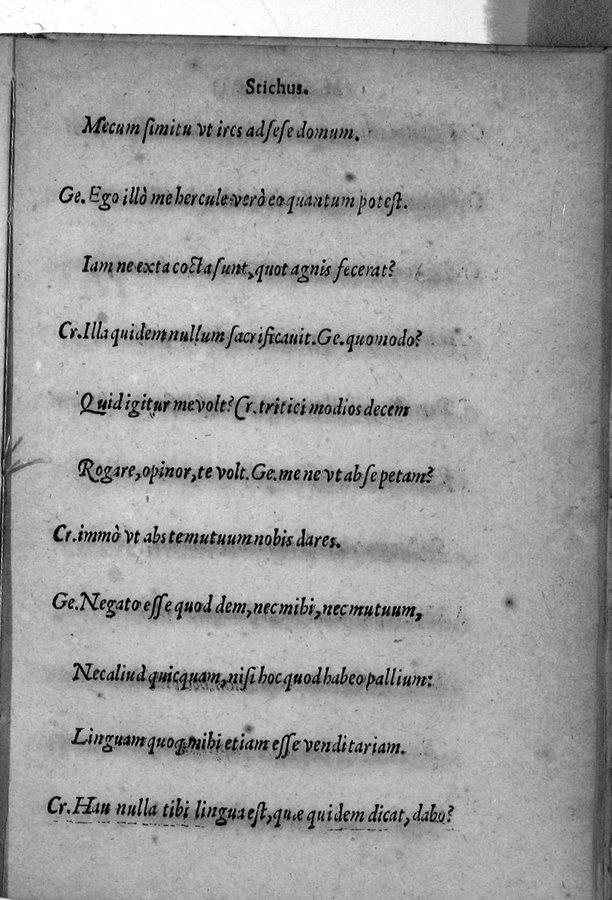 Stichus.
Mecum simitu vt ires ad sese domum.
Ge. Ego illò me hercule verò eo quantum potest.
Iam ne exta cocta sunt, quot agnis fecerat?
Cr. Illa quidem nullum sacrificauit. Ge. quomodo?
Quid igitur me volt? Cr. tritici modios decem
Rogare, opinor, te volt. Ge. me ne vt ab se petam?
Cr. immò vt abs te mutuum nobis dares.
Ge. Negato esse quod dem, nec mihi, nec mutuum,
Nec aliud quicquam, nisi hoc quod habeo pallium:
Linguam quoq; mihi etiam esse venditariam.
Cr. Hau nulla tibi lingua est, quæ quidem dicat, dabo?